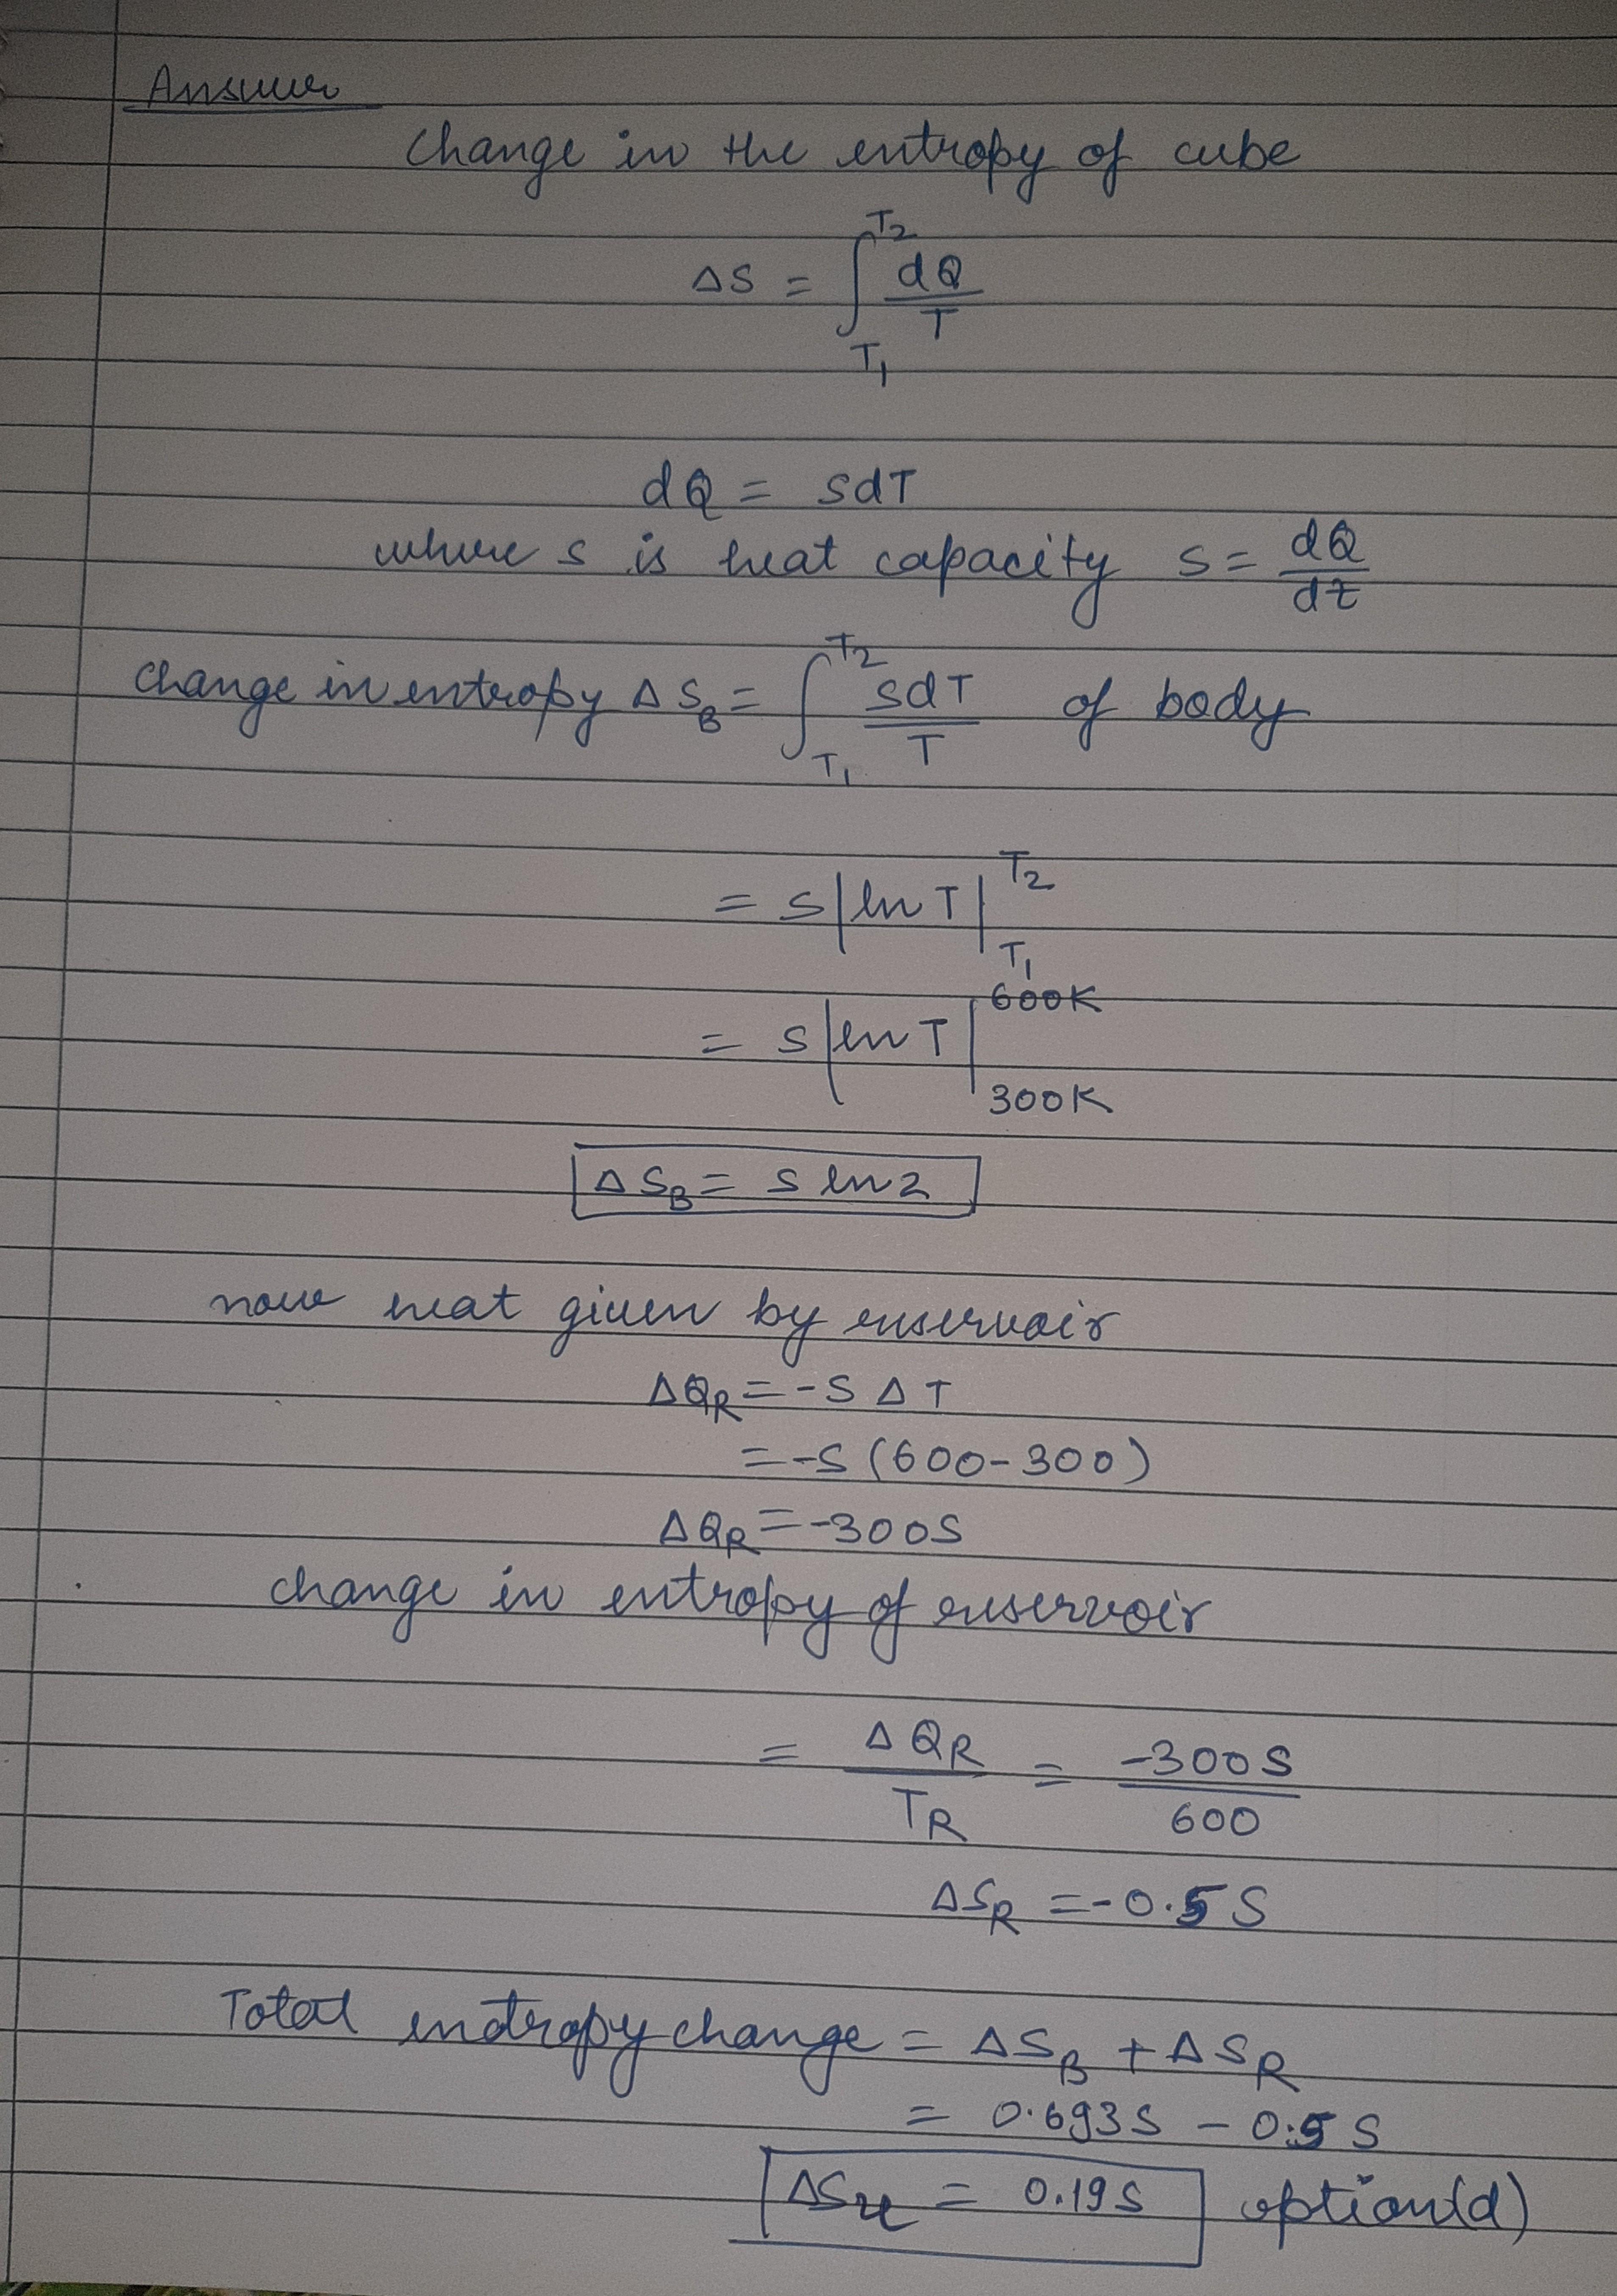 Answer
Change in the entropy of cube
ΔS = ∫_{T1}^{T2} dQ/T
dQ = sdT
where s is heat capacity s = dQ/dt
Change in entropy ΔS_B = ∫_{T1}^{T2} sdT/T of body
= s|ln T|_{T1}^{T2}
= s|ln T|_{300K}^{600K}
ΔS_B = s ln 2
now heat given by reservoir
ΔQ_R = -S ΔT
= -S (600-300)
ΔQ_R = -300S
change in entropy of reservoir
= ΔQ_R/T_R = -300S/600
ΔS_R = -0.5 S
Total entropy change = ΔS_B + ΔS_R
= 0.693S - 0.5 S
ΔS_u = 0.19S option(d)